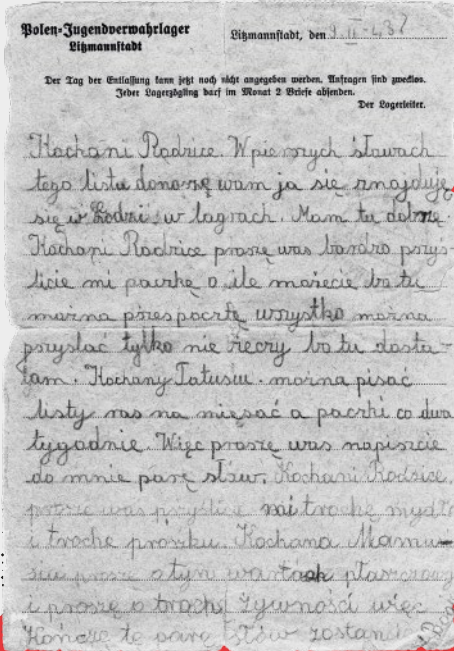 Polen-Jugendverwahrlager
Litzmannstadt
Litzmannstadt, den 9. II - 43
Der Tag der Entlassung kann jetzt noch nicht angegeben werden. Anfragen sind zwecklos.
Jeder Lagerzögling darf im Monat 2 Briefe absenden.
Der Lagerleiter.
Kochani Rodzice. W pierszych słowach
tego listu donoszę wam ja sie znajduję
się w Łodzi w lagrach. Mam tu dobrze.
Kochani Rodzice proszę was bardzo przyś-
licie mi paczkę o ile możecie bo tu
można przes pocztę wszystko można
przysłać tylko nie rzeczy bo tu dosta-
łam. Kochany Tatusiu. można pisać
listy ras na miesać a paczki co dwa
tygodnie. Więc proszę was napiszcie
do mnie parę słów. Kochani Rodzice.
proszę was przyślicie mi trochę mydła
i trochę proszku. Kochana Mamu-
siu proszę o tym
i proszę o trochę żywności więc
Kończę te parę słów zostań